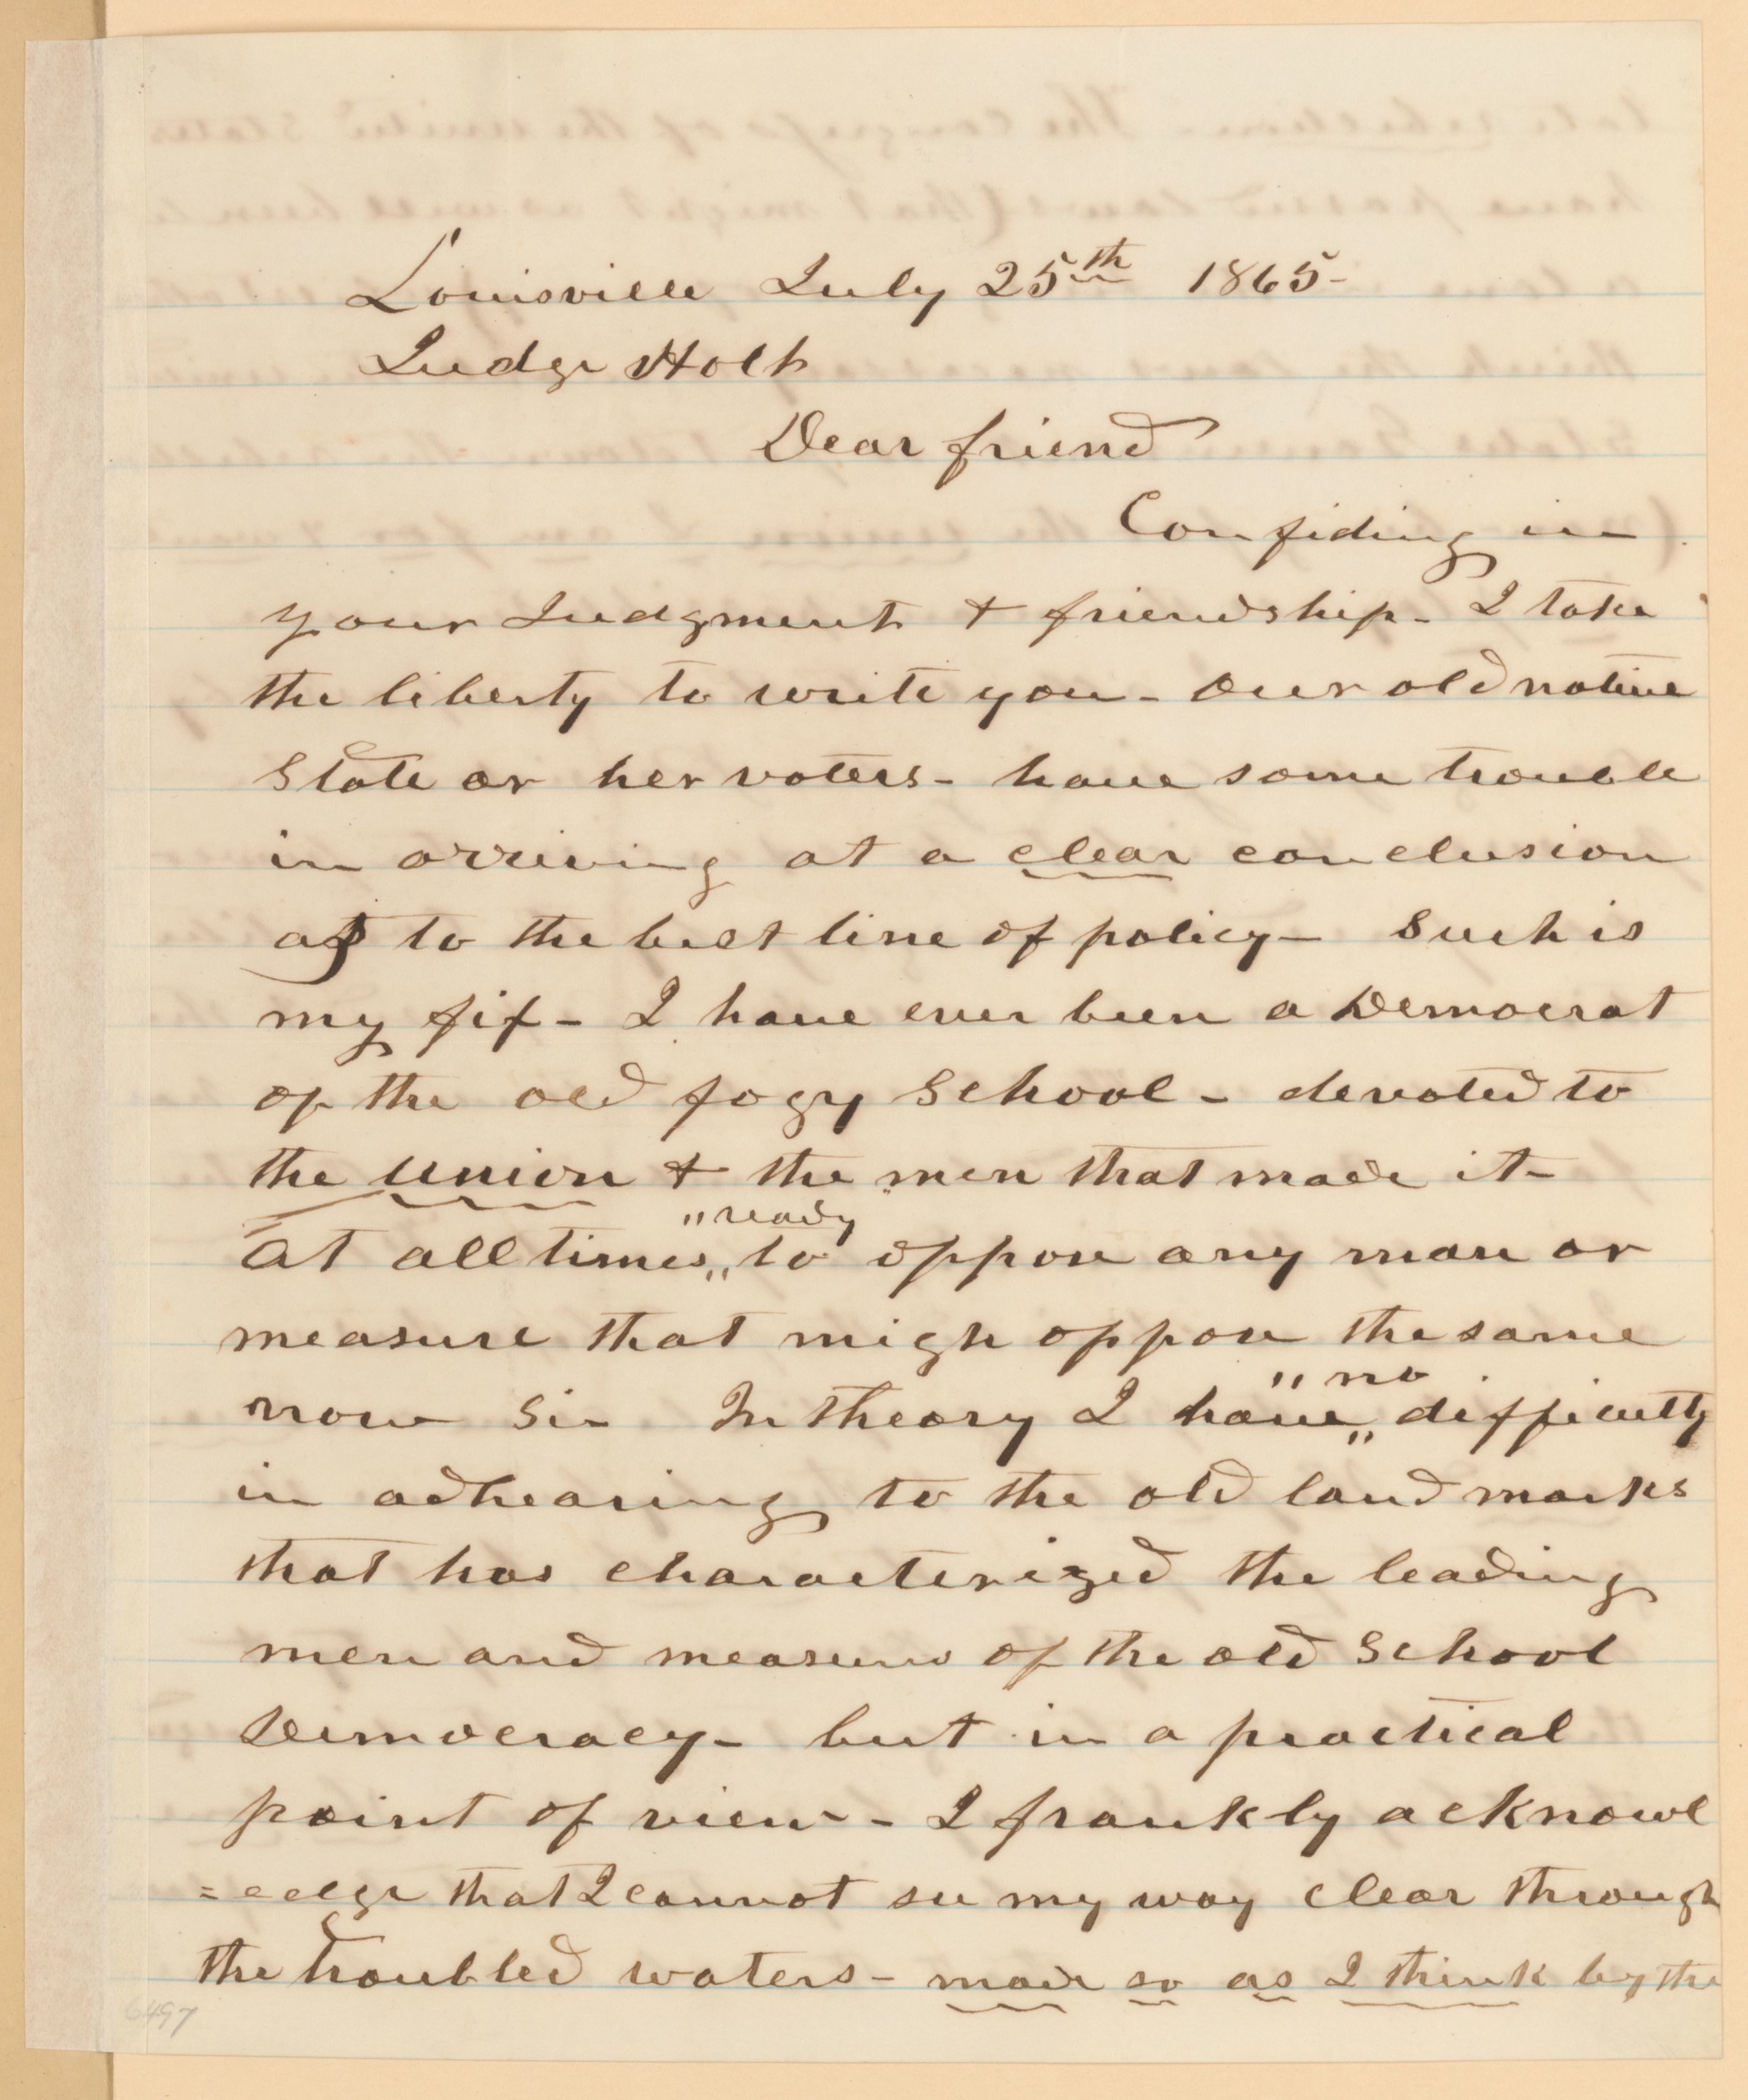 Louisville July 25th 1865-
Judge Holt
Dear friend
Confiding in
your Judgment + friendship- I take
the liberty to write you- Our old native
State or her voters- have some trouble
in arriving at a clear conclusion
as to the best line of policy- Such is
my fix- I have ever been a Democrat
of the old fogy School- devoted to
the Union + the men that made it-
"ready
At all times,, to oppose any man or
measure that migh oppose the same
" no
now Sir In theory I have,, difficulty
in adhearing to the old land marks
that has characterized the leading
men and measures of the old School
Democracy- but in a practical
point of view- I frankly acknowl
=edge that I cannot see my way clear through
the troubled waters- made so as I think by the
6497